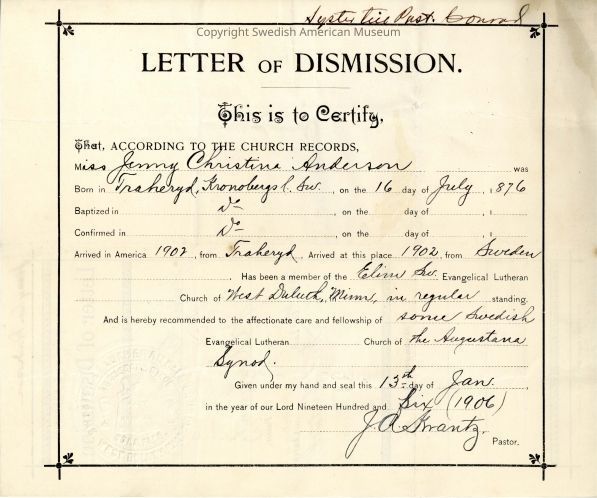 Syster till Past. Conrad
Copyright Swedish American Museum
LETTER OF DISMISSION.
This is to Certify,
That, ACCORDING TO THE CHURCH RECORDS,
Miss Jenny Christina Anderson was
Born in Traheryd, Kronobergs l. Sw., on the 16 day of July, 1876
Baptized in Do, on the day of , 1
Confirmed in Do, on the day of , 1
Arrived in America 1902, from Traheryd. Arrived at this place 1902, from Sweden
Has been a member of the Elim Sw. Evangelical Lutheran
Church of West Duluth, Minn, in regular standing.
And is hereby recommended to the affectionate care and fellowship of some Swedish
Evangelical Lutheran Church of the Augustana
Synod.
Given under my hand and seal this 13th day of Jan.
in the year of our Lord Nineteen Hundred and Six (1906)
J. A. Krantz,
Pastor.